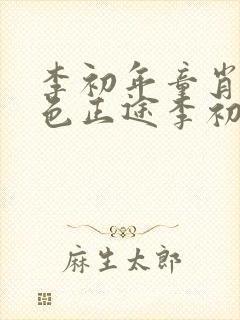 李初年童肖
色正途李初
麻生太郎